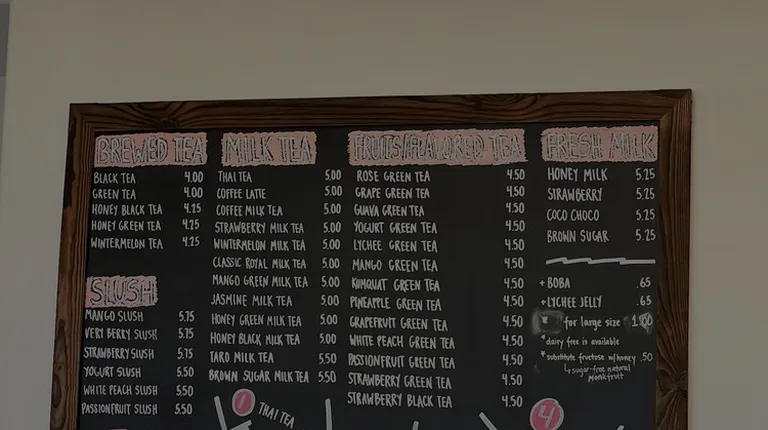 BREWED TEA
BLACK TEA 4.00
GREEN TEA 4.00
HONEY BLACK TEA 4.25
HONEY GREEN TEA 4.25
WINTERMELON TEA 4.25
SLUSH
MANGO SLUSH 5.75
VERY BERRY SLUSH 5.75
STRAWBERRY SLUSH 5.75
YOGURT SLUSH 5.50
WHITE PEACH SLUSH 5.50
PASSIONFRUIT SLUSH 5.50
MILK TEA
THAI TEA 5.00
COFFEE LATTE 5.00
COFFEE MILK TEA 5.00
STRAWBERRY MILK TEA 5.00
WINTERMELON MILK TEA 5.00
CLASSIC ROYAL MILK TEA 5.00
MANGO GREEN MILK TEA 5.00
JASMINE MILK TEA 5.00
HONEY GREEN MILK TEA 5.00
HONEY BLACK MILK TEA 5.00
TARO MILK TEA 5.50
BROWN SUGAR MILK TEA 5.50
1 THAI TEA
FRUITS/FLAVORED TEA
ROSE GREEN TEA 4.50
GRAPE GREEN TEA 4.50
GUAVA GREEN TEA 4.50
YOGURT GREEN TEA 4.50
LYCHEE GREEN TEA 4.50
MANGO GREEN TEA 4.50
KUMQUAT GREEN TEA 4.50
PINEAPPLE GREEN TEA 4.50
GRAPEFRUIT GREEN TEA 4.50
WHITE PEACH GREEN TEA 4.50
PASSIONFRUIT GREEN TEA 4.50
STRAWBERRY GREEN TEA 4.50
STRAWBERRY BLACK TEA 4.50
4
FRESH MILK
HONEY MILK 5.25
STRAWBERRY 5.25
COCO CHOCO 5.25
BROWN SUGAR 5.25
+ BOBA .65
+ LYCHEE JELLY .65
* for large size 1.00
*dairy free is available
*substitute fructose w/honey .50
↳sugar-free natural
monkfruit